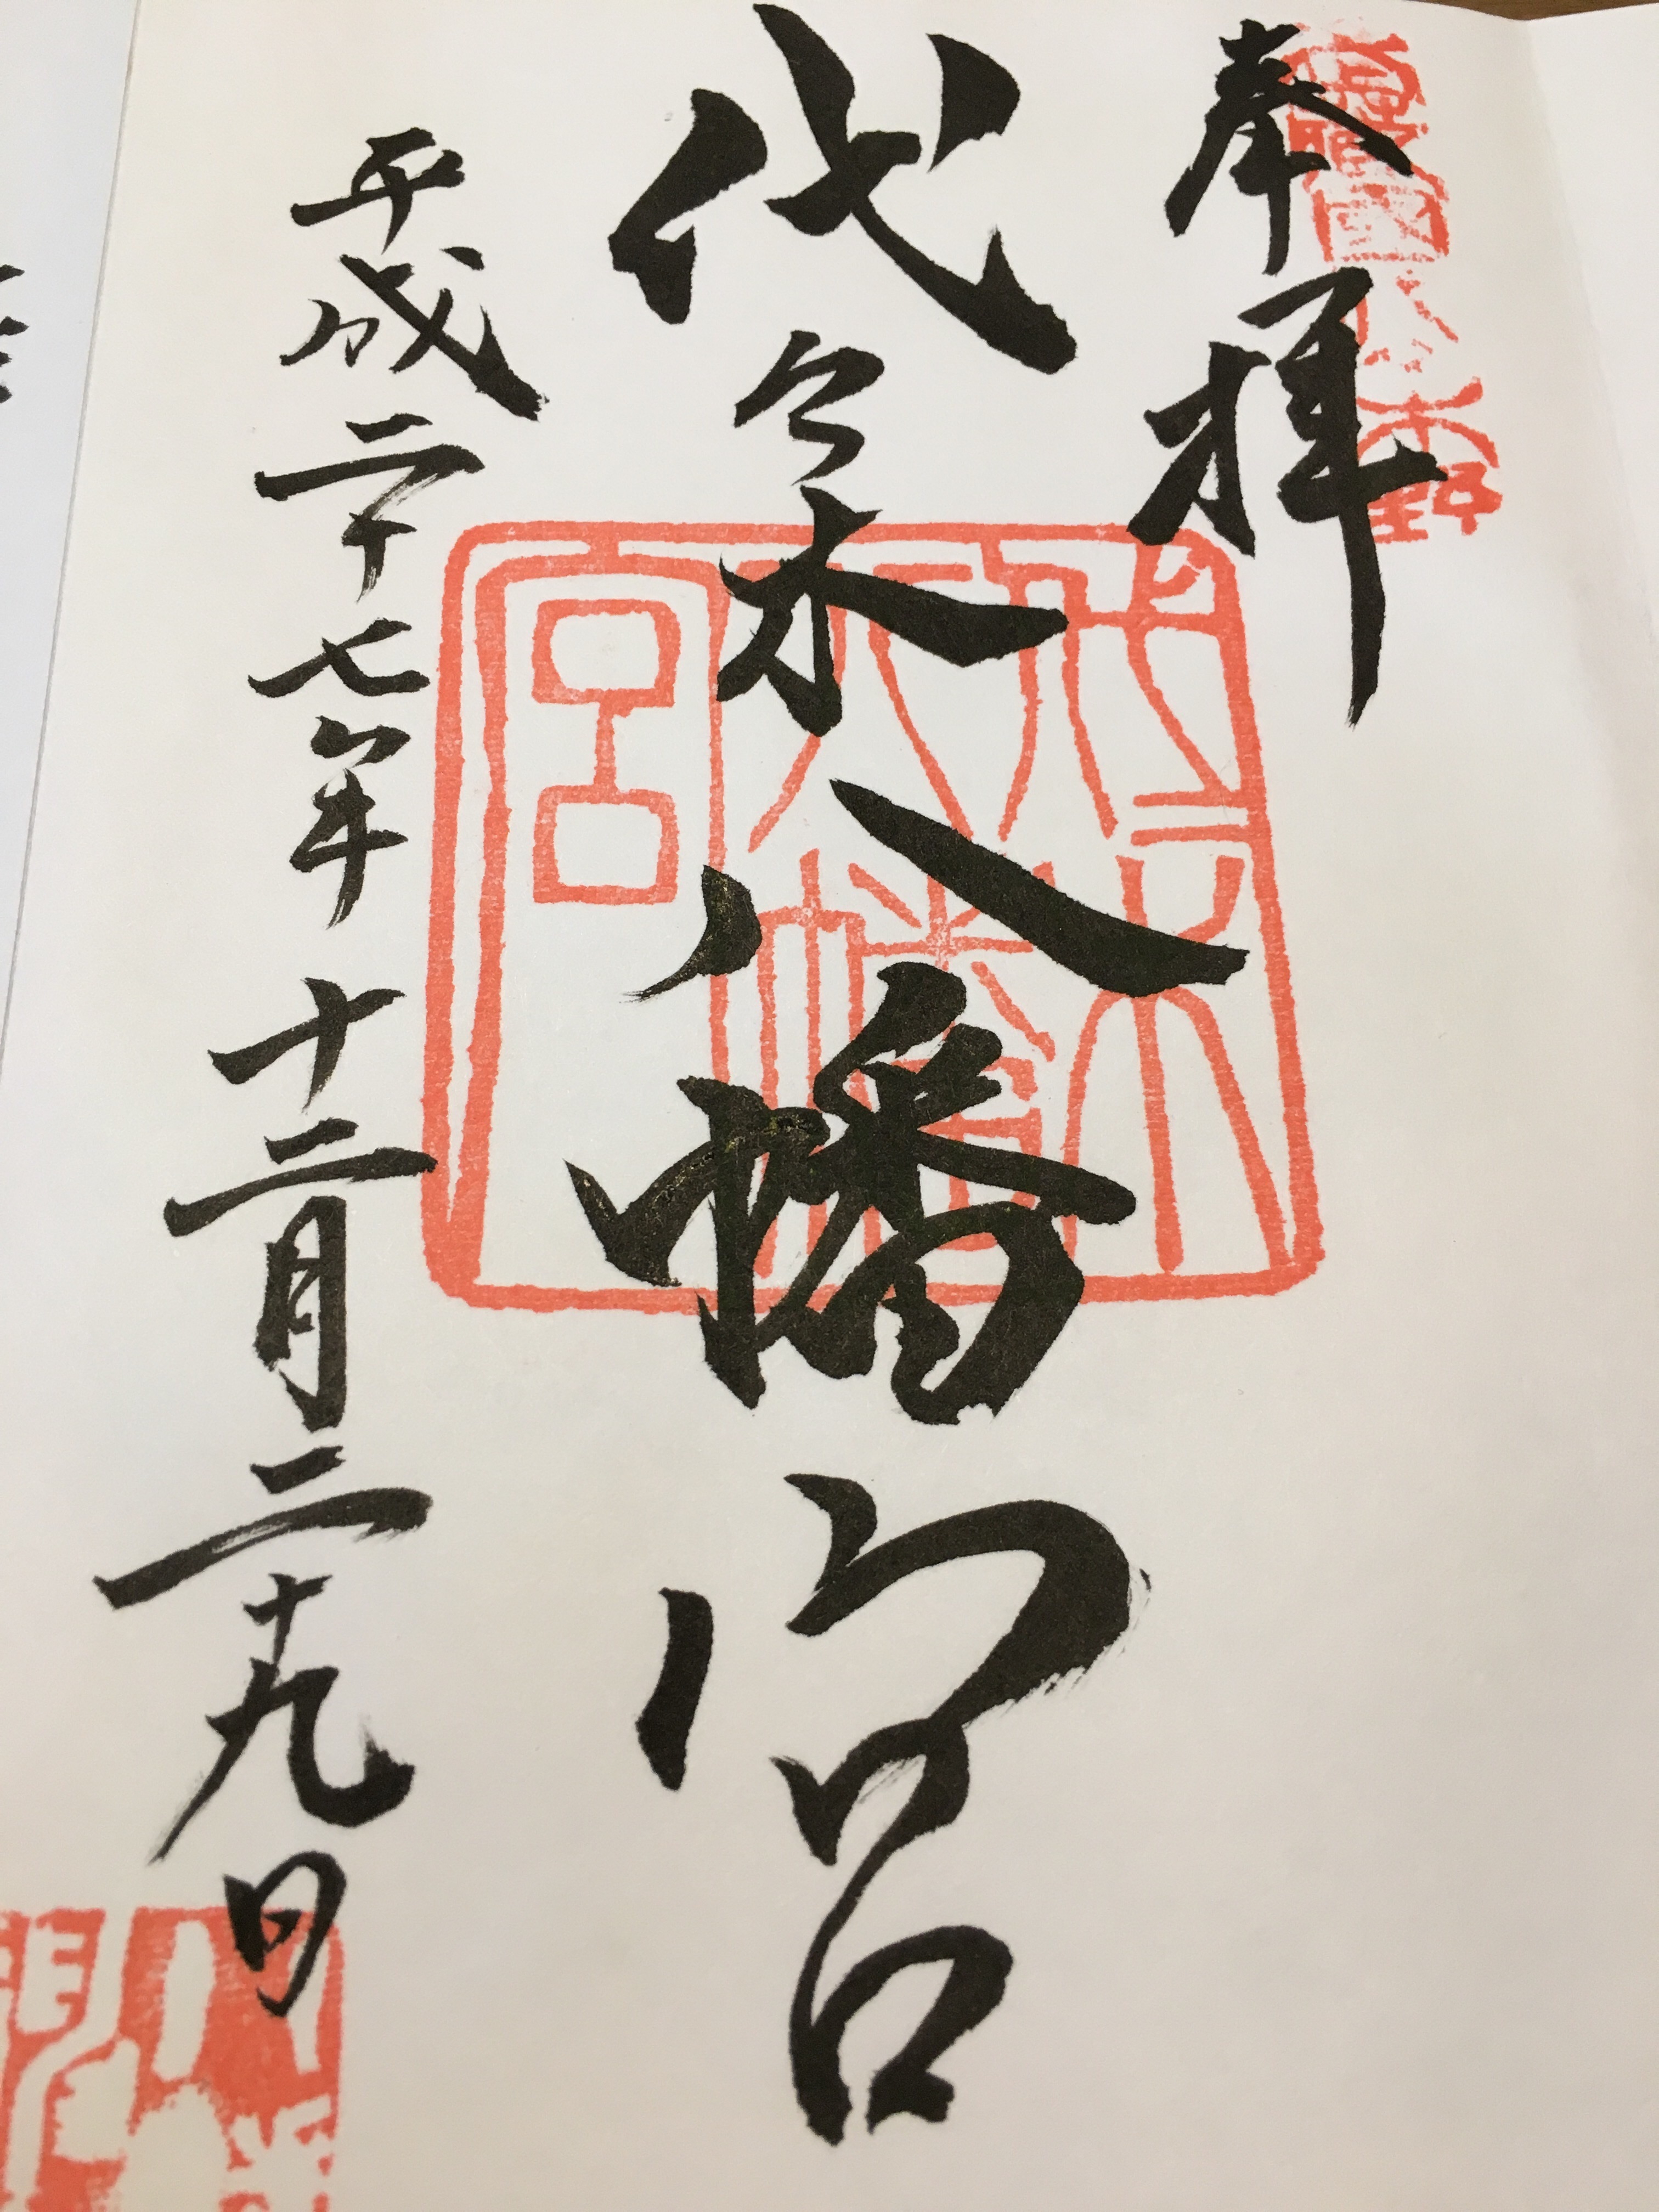 奉拝
代々木八幡宮
平成二十七年十二月二十九日
代々木八幡宮